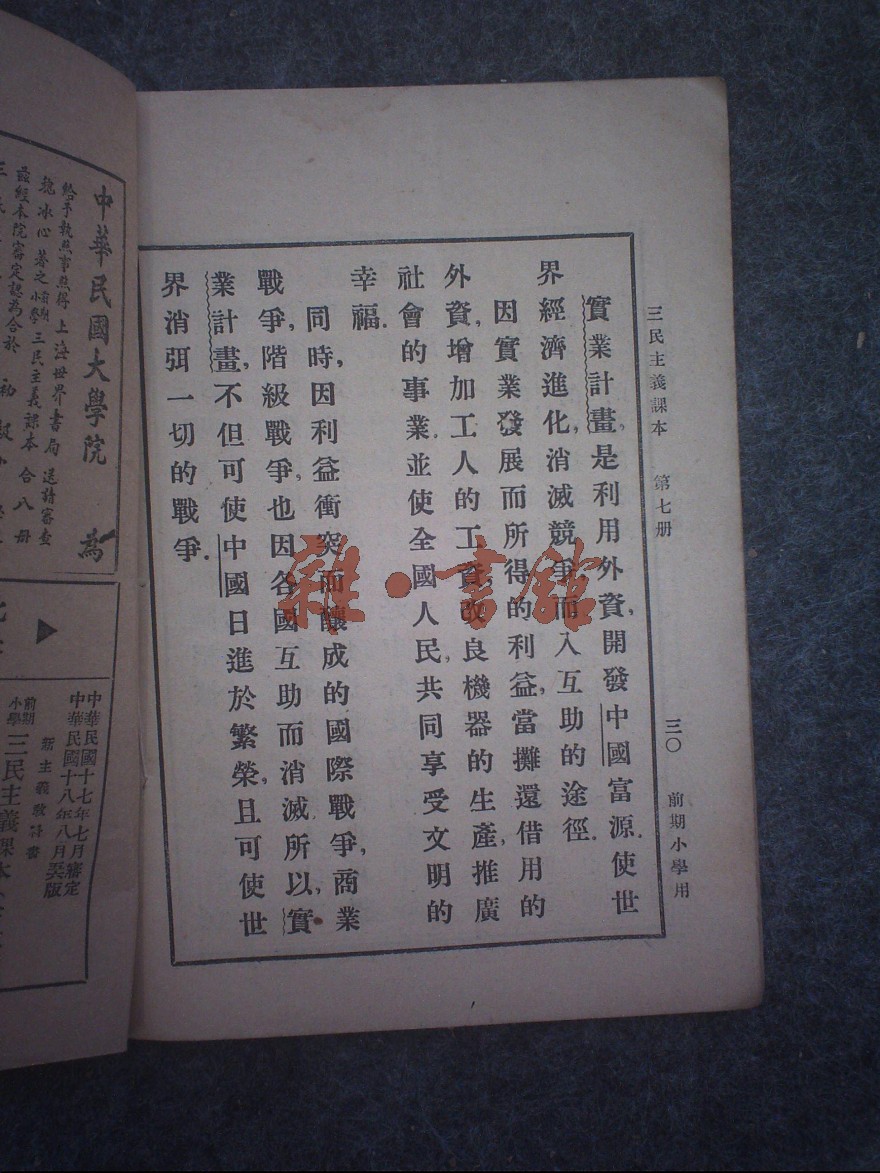 三民主義課本　第七册　三〇　前期小學用
實業計畫，是利用外資，開發中國富源．使世
界經濟進化，消滅競爭，而入互助的途徑．
因實業發展而所得的利益，當攤還借用的
外資，增加工人的工資，改良機器的生產，推廣
社會的事業，並使全國人民，共同享受文明的
幸福．
同時，因利益衝突而釀成的國際戰爭，商業
戰爭，階級戰爭，也因各國互助而消滅．所以，實
業計畫，不但可使中國日進於繁榮，且可使世
界消弭一切的戰爭．
雜·書館
中華民國大學院　為
給予執照事照得上海世界書局送請審查
魏冰心著之前期小學三民主義課本合八册
茲經本院審定認為合於初級小學
中華民國十七年七月審定
中華民國十八年八月
新主義教科書
前期小學三民主義課本